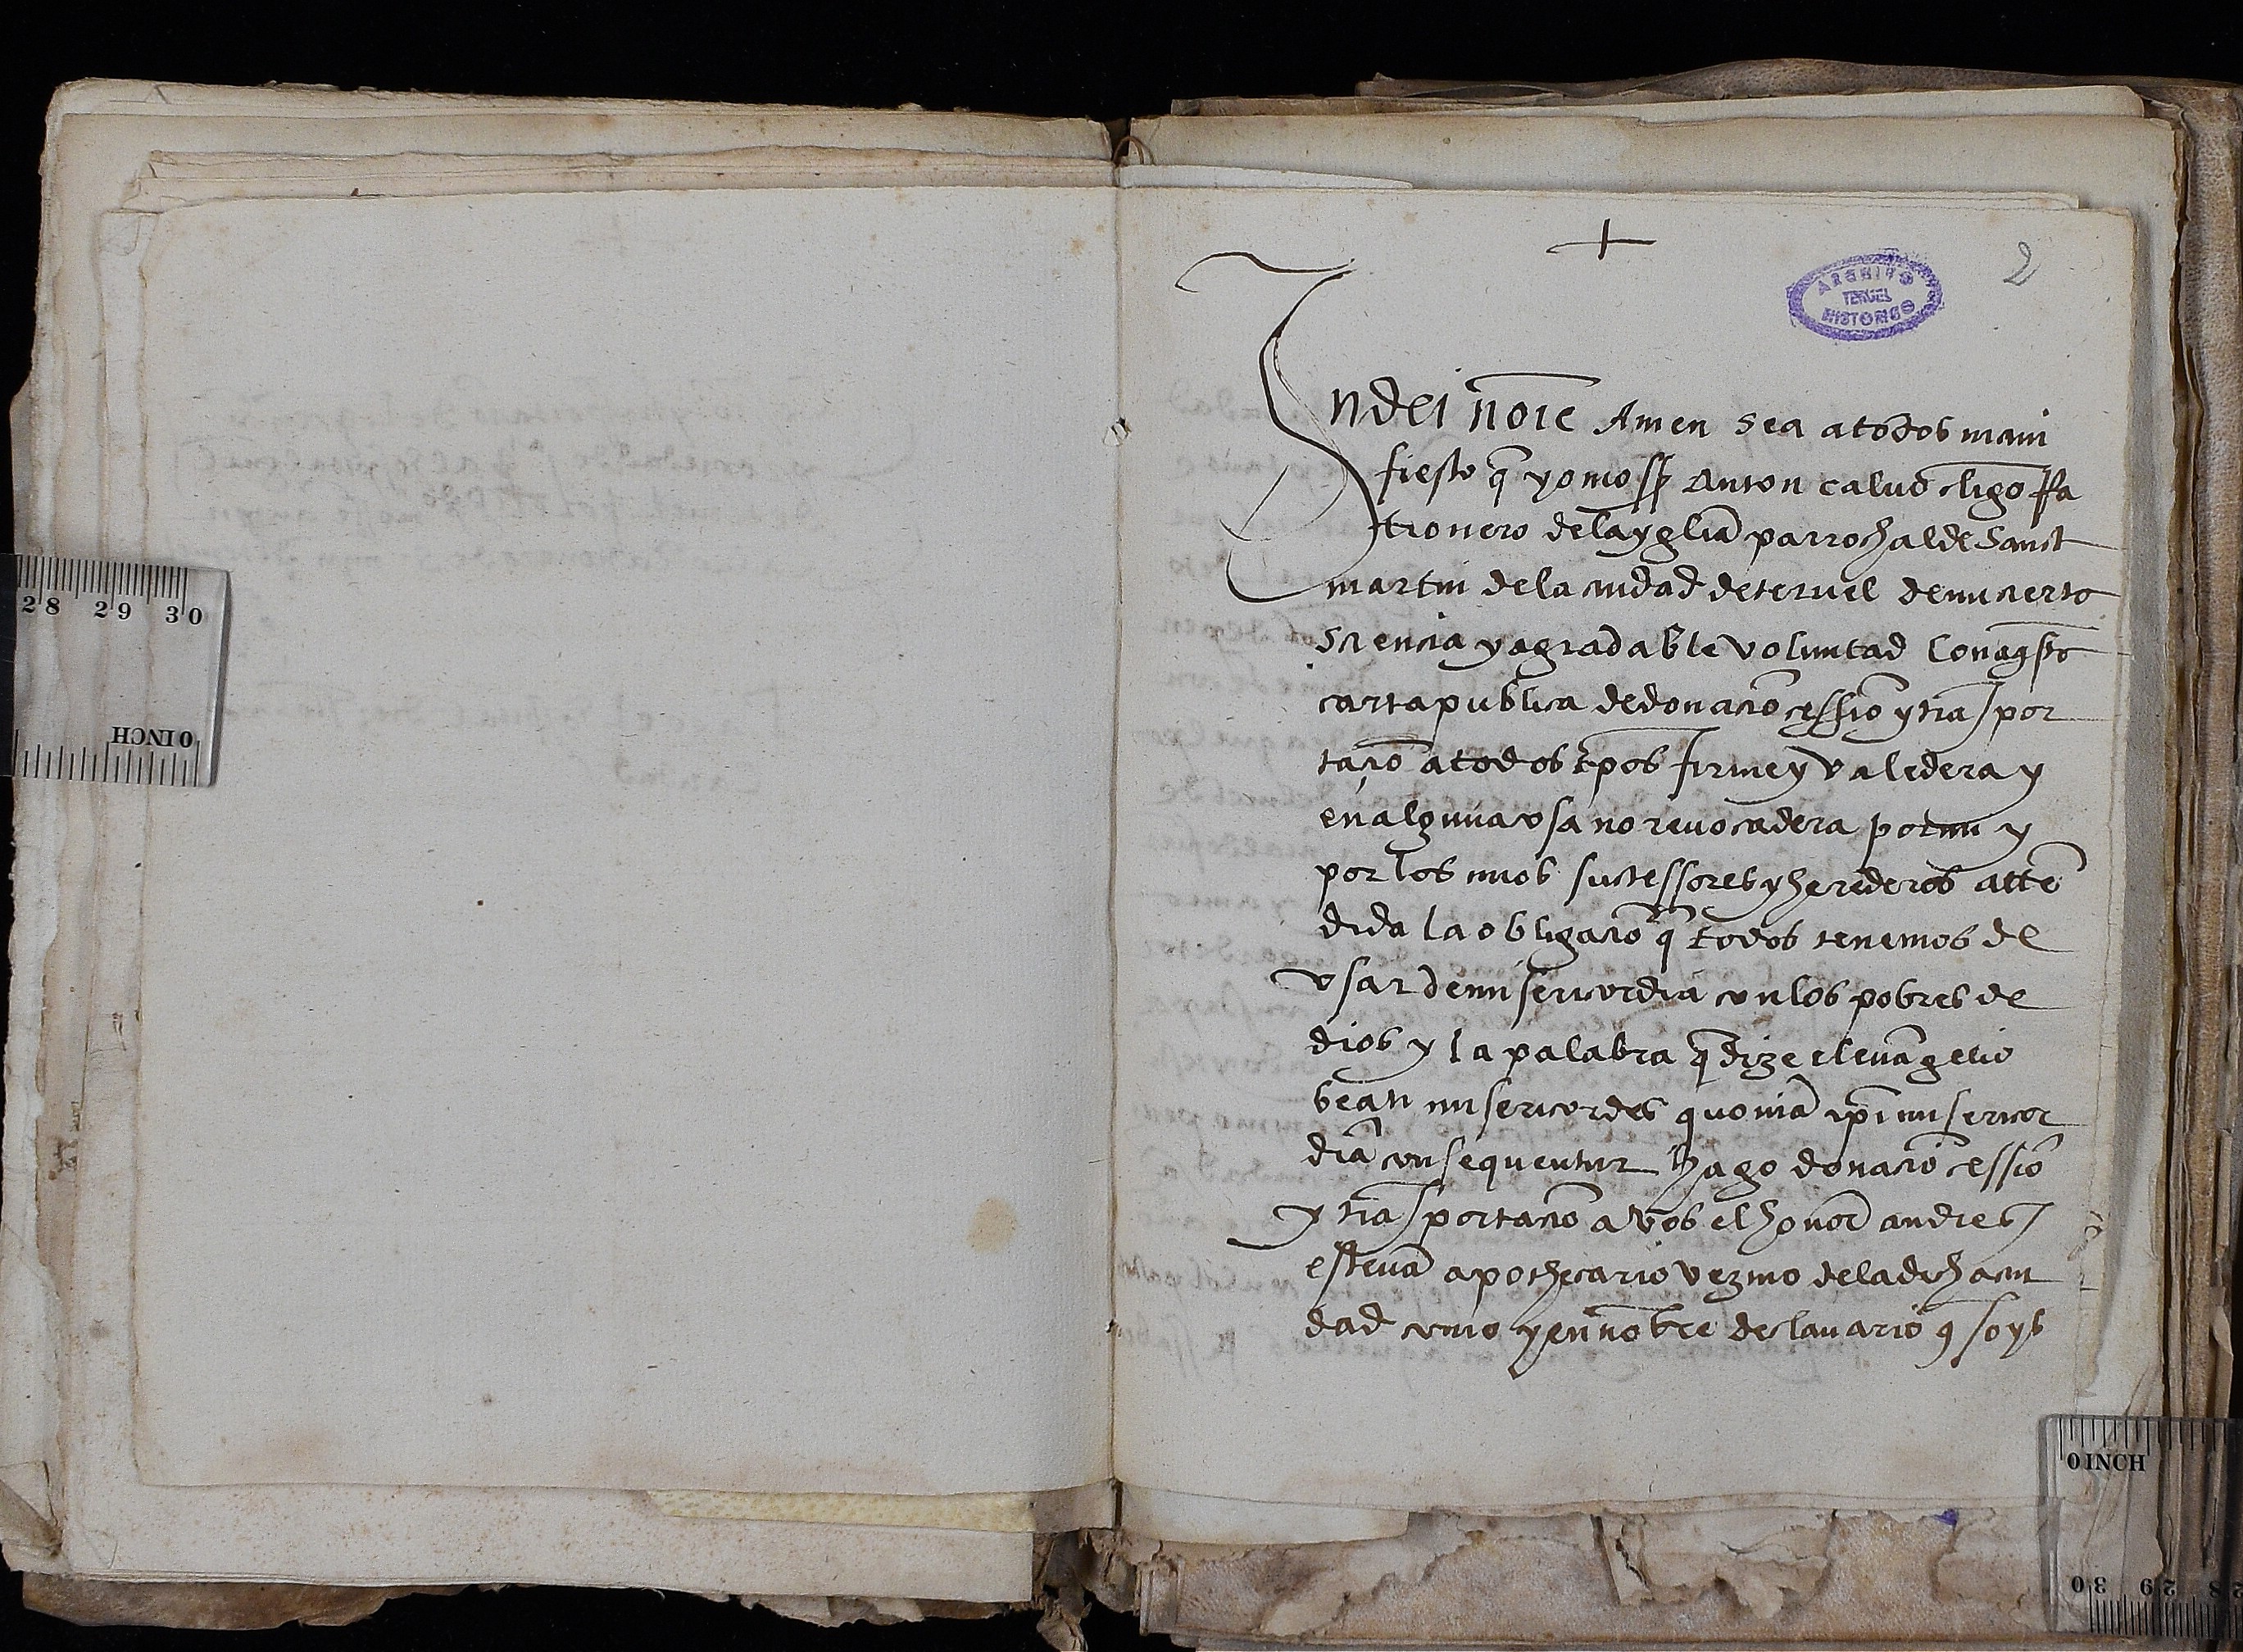 +
2
ARCHIVO
TERUEL
HISTORICO
In dei noīe Amen sea a todos mani
fiesto q̄ yo mossē Anton caluo cligō Ra
tionero de la ygliā parrochal de Sanct
martin de la ciudad de teruel de mi cierta
sciencia y agradable voluntad con aq̄sta
carta publica de donaciō cessiō y trāspor
taciō a todos tp̄os firme y valedera y
en alguna cosa no reuocadera por mi y
por los mios successores y herederos attē
dida la obligaciō q̄ todos tenemos de
vsar de misericordia con los pobres de
dios y la palabra q̄ dize el euāgelio
beati misericordes quoniā ip̄i misericor
diā consequentur hago donaciō cessiō
y trāsportaciō a vos el honor andres
esteuā apothecario vezino de la dicha ciu
dad como y en nōbre de clauario q̄ soys
28 29 30
0 INCH
0 INCH
28 29 30